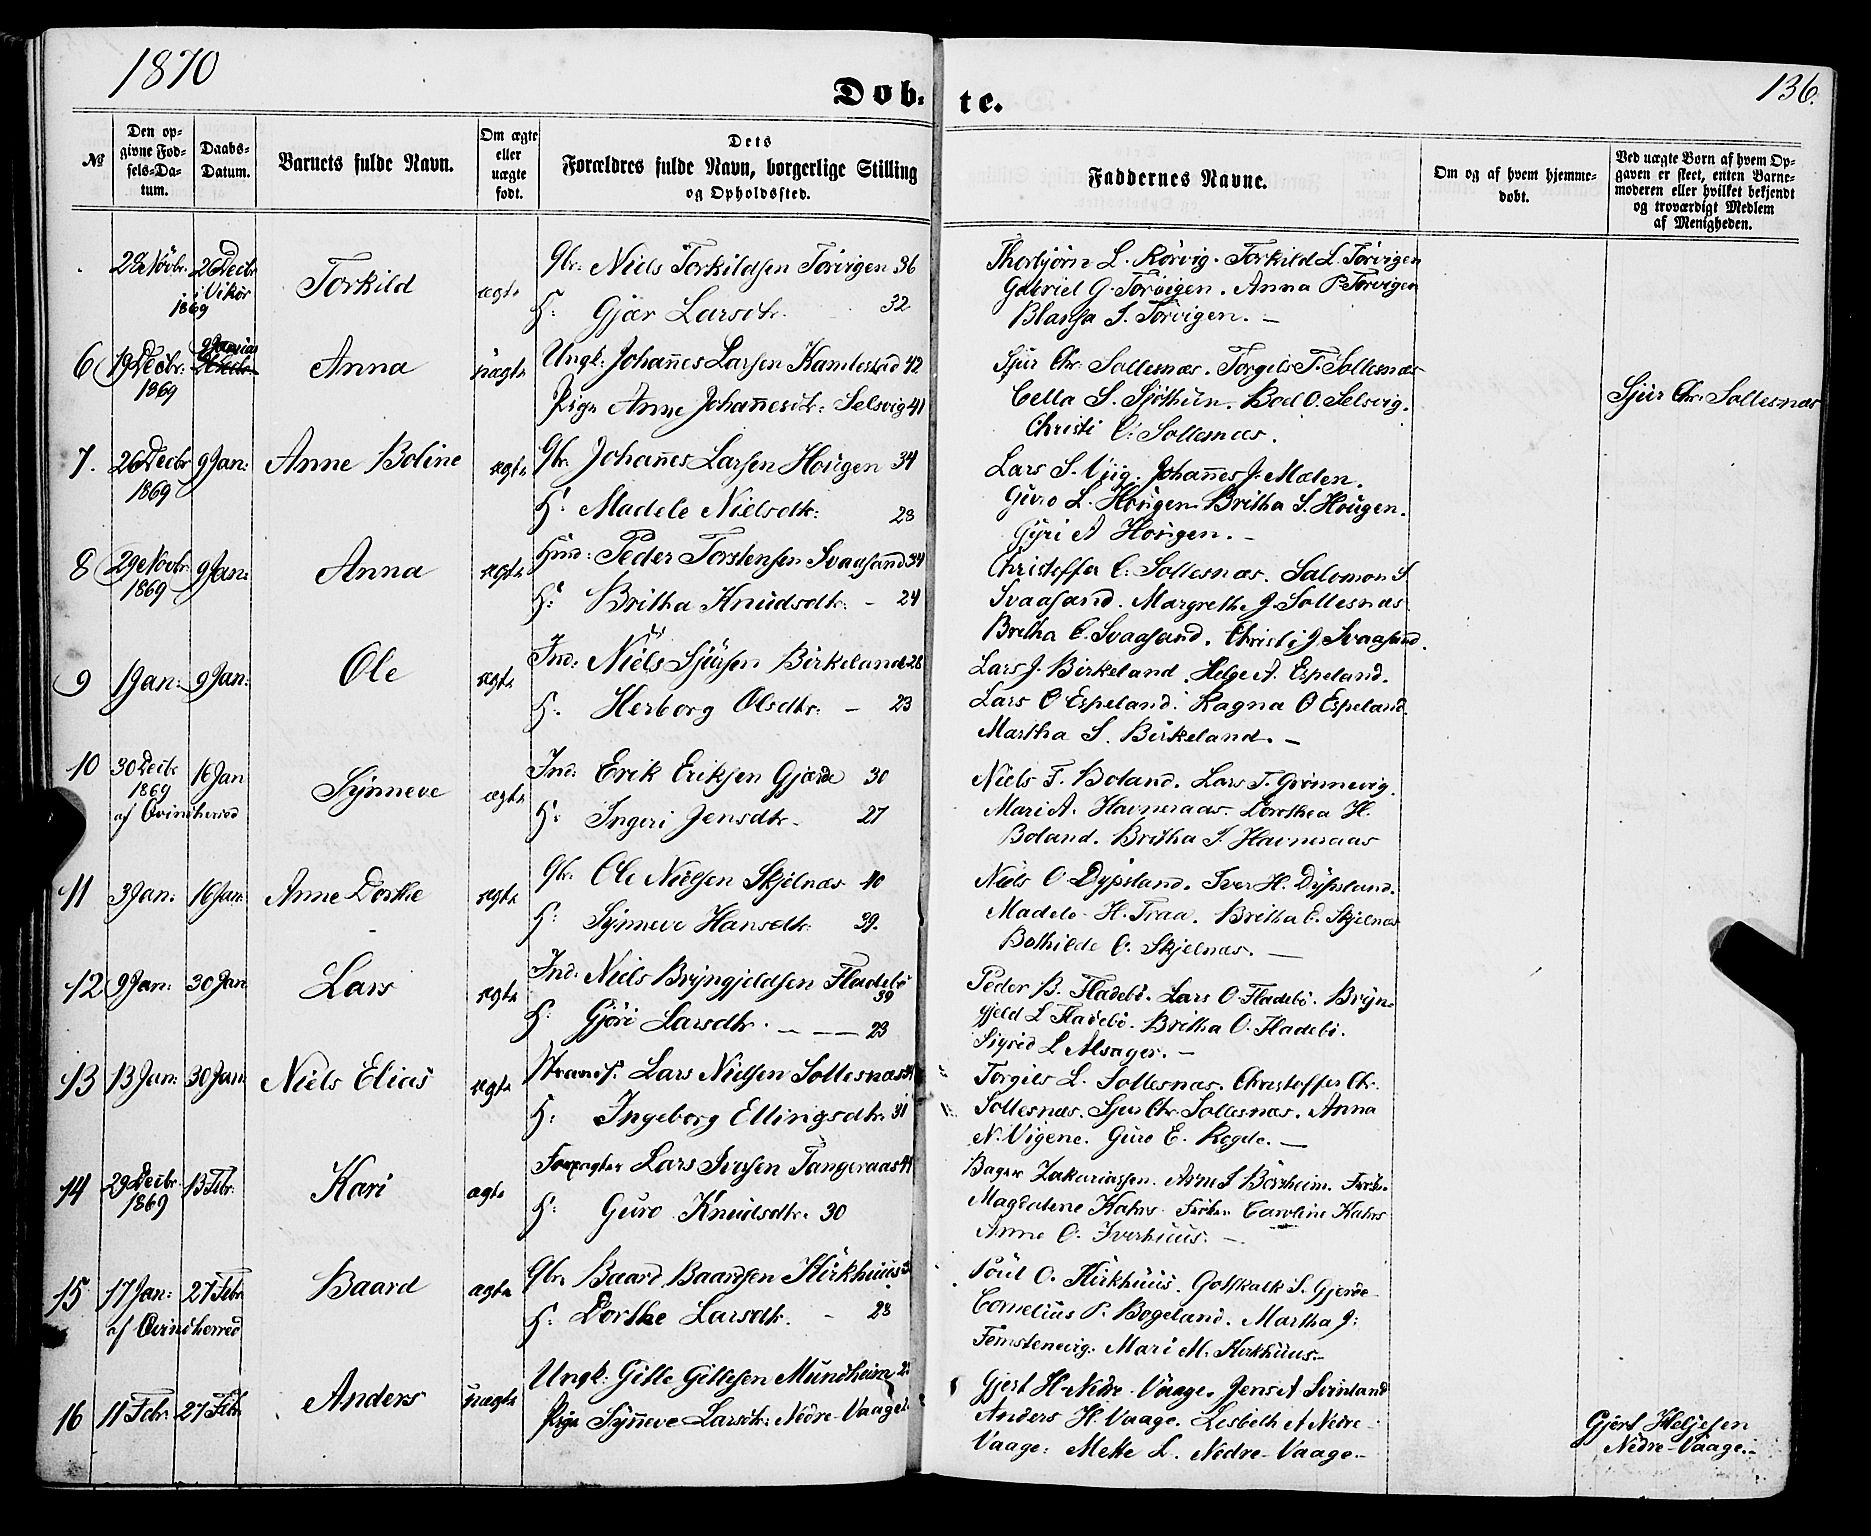 1870
136.
Døb-
te.
№
Den op-
givne Fød-
sels-Da-
tum.
Daabs-
Datum.
Barnets fulde Navn.
Om ægte
eller
uægte
født.
Dets
Forældres fulde Navn, borgerlige Stilling
og Opholdssted.
Faddernes Navne.
Om og af hvem hjemme-
døbt.
Ved uægte Børn af hvem Op-
gaven er skeet, enten Barne-
moderen eller hvilket bekjendt
og troværdigt Medlem
af Menigheden.
28 Novbr. 26 Decbr Torkild ægte Gbr. Niels Torkildsen Torvigen 36 Thorbjørn L. Rørvig. Torkild L. Torvigen
i Vikør
1869 H: Gjær Larsdtr. 32 Gabriel G. Torvigen. Anna P. Torvigen
S. Torvigen. —
6 19 Decbr. 9 Januar Anna uægte Ungk: Johañes Larsen Kamlesæd 42 Sjur Chr. Sollesnæs. Torgils T. Sollesnæs
1869 Pige Anne Johañesdtr: Selsvig 41 Cella S. Sjøthun. Boel O. Selsvig. Sjur Chr. Sollesnæs
Christi C. Sollesnæs.
7. 26 Decbr 9 Jan: Anne Boline ægte Gbr. Johañes Larsen Hougen 34 Lars S. Viig. Johañes J. Mælen.
1869 H: Madele Nielsdtr: 23 Guro L. Hougen. Britha S. Hougen.
Gyri A Hougen. —
8 29 Novbr. 9 Jan: Anna ægte Huusd: Peder Torstensen Svaasand 34 Christoffer C: Sollesnæs. Salomon S
1869 H: Britha Knudsdtr: — 24 Svaasand. Margrethe J. Sollesnæs
Bretha C. Svaasand. Christi J. Svaasand.
9 1 Jan: 9 Jan: Ole ægte Ind: Niels Sjursen Birkeland 28 Lars J. Birkeland. Helge A. Espeland.
H: Herborg Olsdtr: — 23 Lars O Espeland. Ragna O Espeland.
Martha S. Birkeland. —
10 30 Decbr 16 Jan Synneve ægte Ind: Erik Eriksen Gjærde 30 Niels T. Boland. Lars T. Grønnevig.
1869
af Qvindherred H: Ingeri Jensdtr. 27 Mari A. Havneraas. Dorthea H.
Boland. Britha S. Havneraas
11 3 Jan: 16 Jan: Anne Dorthe ægte Gbr. Ole Nielsen Skjelnæs 40 Niels O. Dypsland. Iver H. Dypsland.
H: Synneve Hansdtr. 39. Madele H. Traa. Britha E. Skjelnæs
Bothilde O. Skjelnæs. —
12 9 Jan: 30 Jan Lars ægte Ind: Niels Bryngjeldsen Fladebø 39 Peder B. Fladebø. Lars O. Fladebø. Bryn-
H: Gjøri Larsdtr. — — — 23 gjeld L Fladebø. Britha O. Fladebø.
Sigrid L Alsager. —
13 13 Jan: 30 Jan Niels Elias ægte Strands: Lars Nielsen Sollesnæs Torgils L. Sollesnæs. Christoffer Chr.
H: Ingeborg Ellingsdtr. 31 Sollesnæs. Sjur Chr. Sollesnæs. Anna
N. Vigene. Guro E. Røgde. —
14 29 Decbr. 13 Febr: Kari ægte Forpagter Lars Iversen Tangeraas Bager Zakariassen. Arne S Børsheim. Frøken
1869 H: Guro Knudsdtr. 30 Magdalene Kahrs. Frøken Caroline Kahrs
Anne O. Iverhuus. —
15 17 Jan: 27 Febr. Baard ægte Gbr. Baard Baardsen Kirkhuus Poul O. Kirkhuus. Gotskalk S. Gjerde
af Qvindherred H. Dorthe Larsdtr. — 28 Cornelius P. Bogeland. Martha J:
Femstenevig. Mari M. Kirkhuus. —
16 11 Febr. 27 Febr Anders uægte Ungk: Gitle Gitlesen Mundheim Gjert H. Nedre-Vaage. Jens A Svinland
Pige Syñeve Larsdtr: Nedre-Vaage Anders H. Vaage. Lisbeth A Nedre- Gjert Heljesen
Vaage: Mette L. Nedre-Vaage. — Nedre-Vaage. —